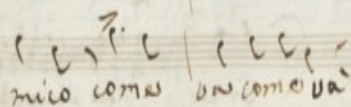 mico come va come và